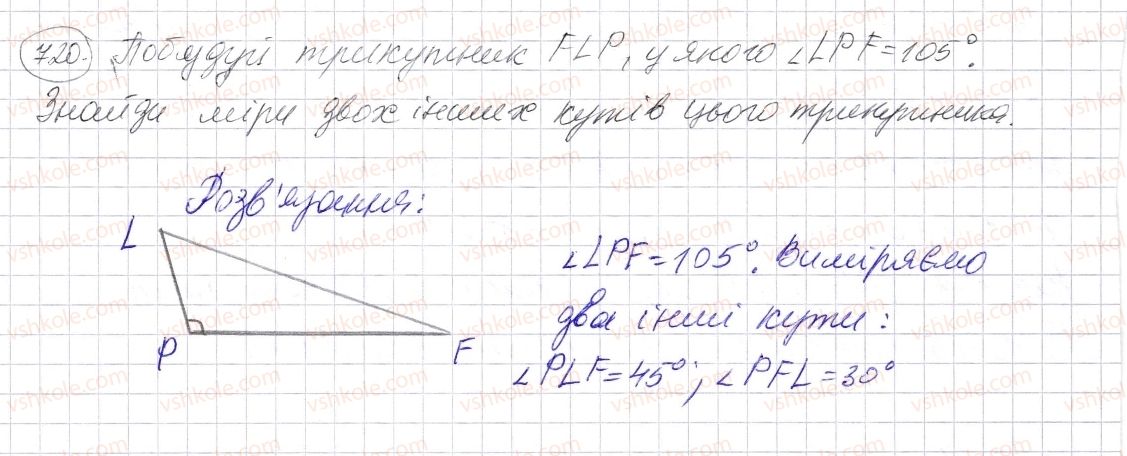 720. Побудуй трикутник FLP, у якого ∠LPF = 105°.
Знайди міри двох інших кутів цього трикутника.
Розв'язання:
L
P
F
∠LPF = 105°. Виміряємо
два інші кути:
∠PLF = 45°; ∠PFL = 30°